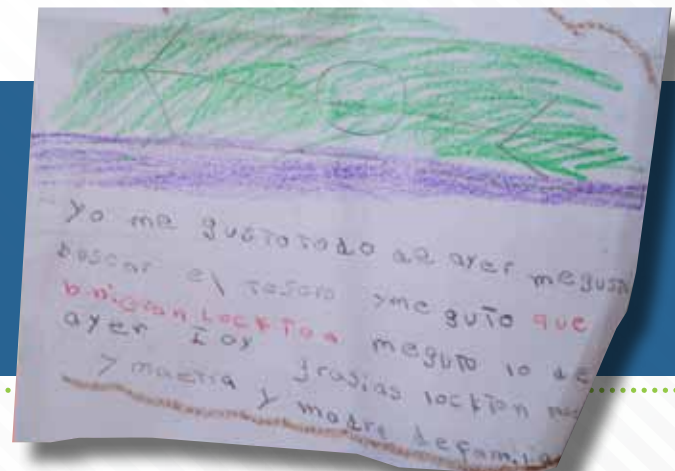 yo me gustotodo de ayer megusto
buscar el tesoro yme guto que
bnieran lockton meguto lo de
ayer I oy grasias lockton
y maetra y madre defamilia